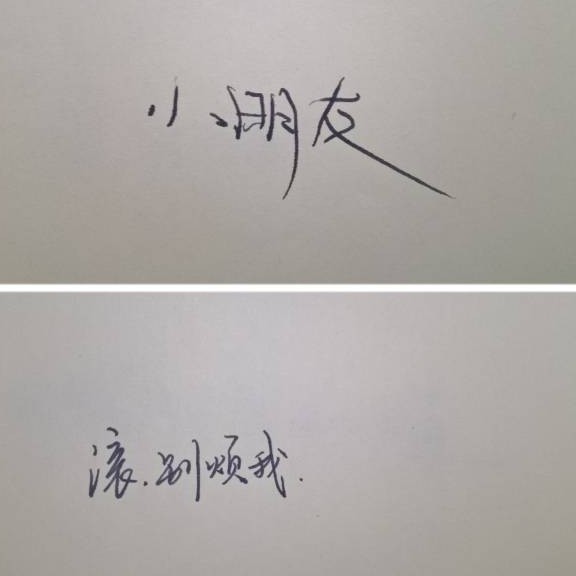 小朋友
滚.别烦我.